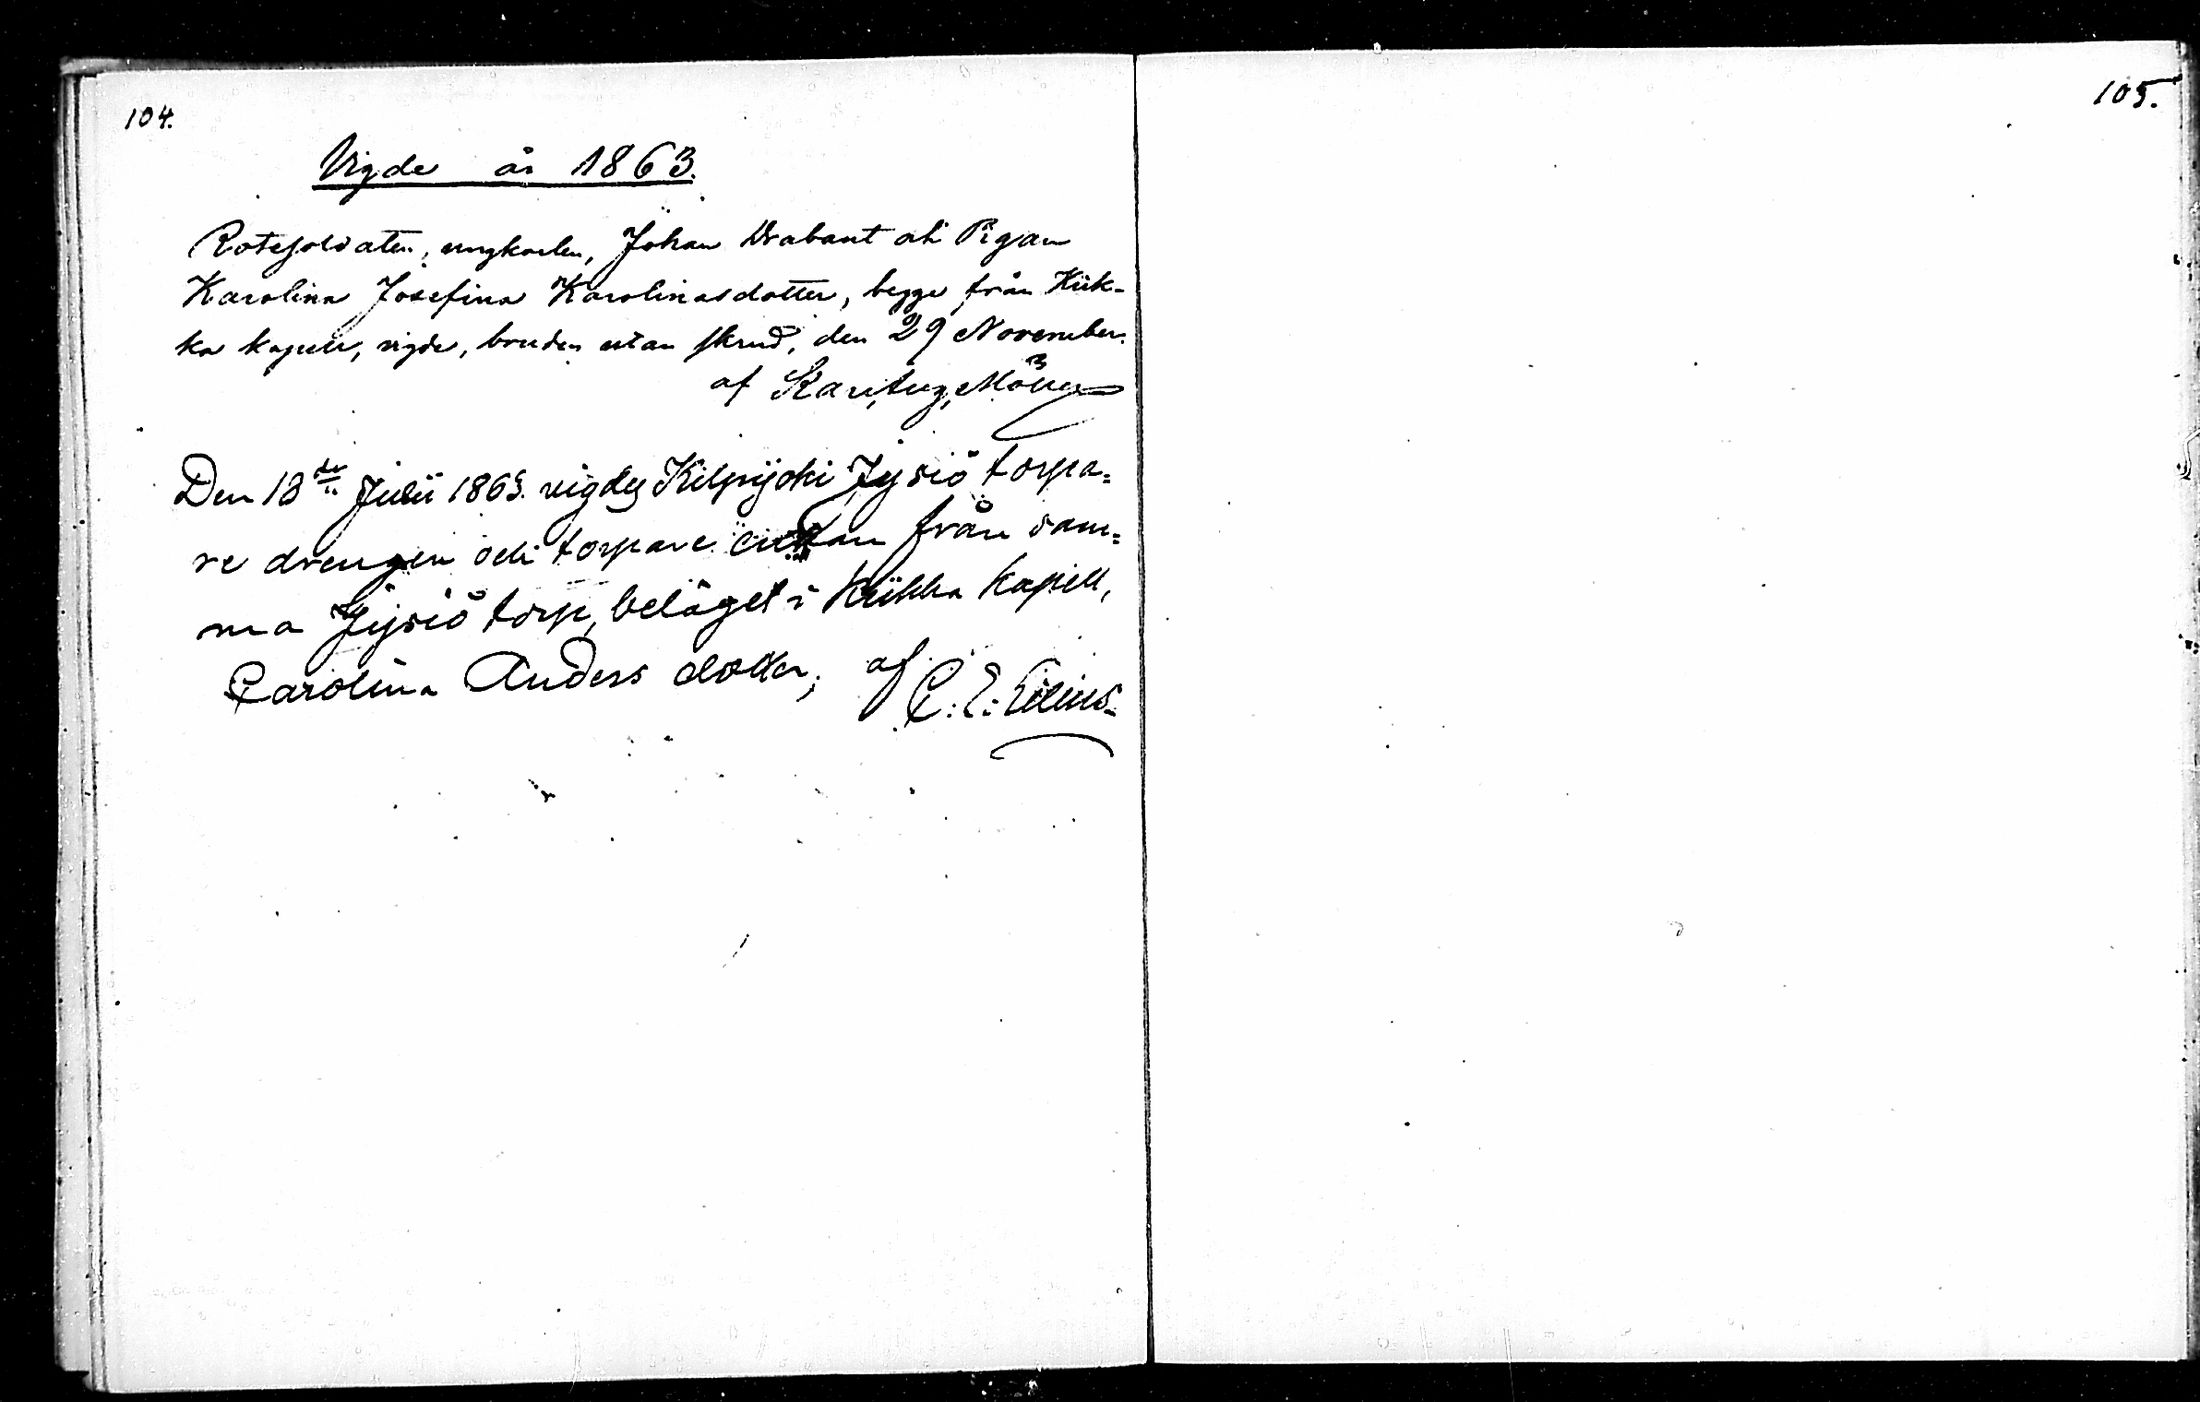 104.
105.
Vigde år 1863.
Rotesoldaten, ungkarlen, Johan Drabant och Pigan
Karolina Josefina Karolinasdotter, begge från Kiik-
ka kapell, vigde, bruden utan skrud, den 29 November.
af
Den 13de Julii 1863. vigdes Kilpijoki Jysiö torpa=
re drengen och torpare enkan från sam=
ma Jysiö torp, beläget i Kiikka kapell,
Carolina Anders dotter, af
C. E.